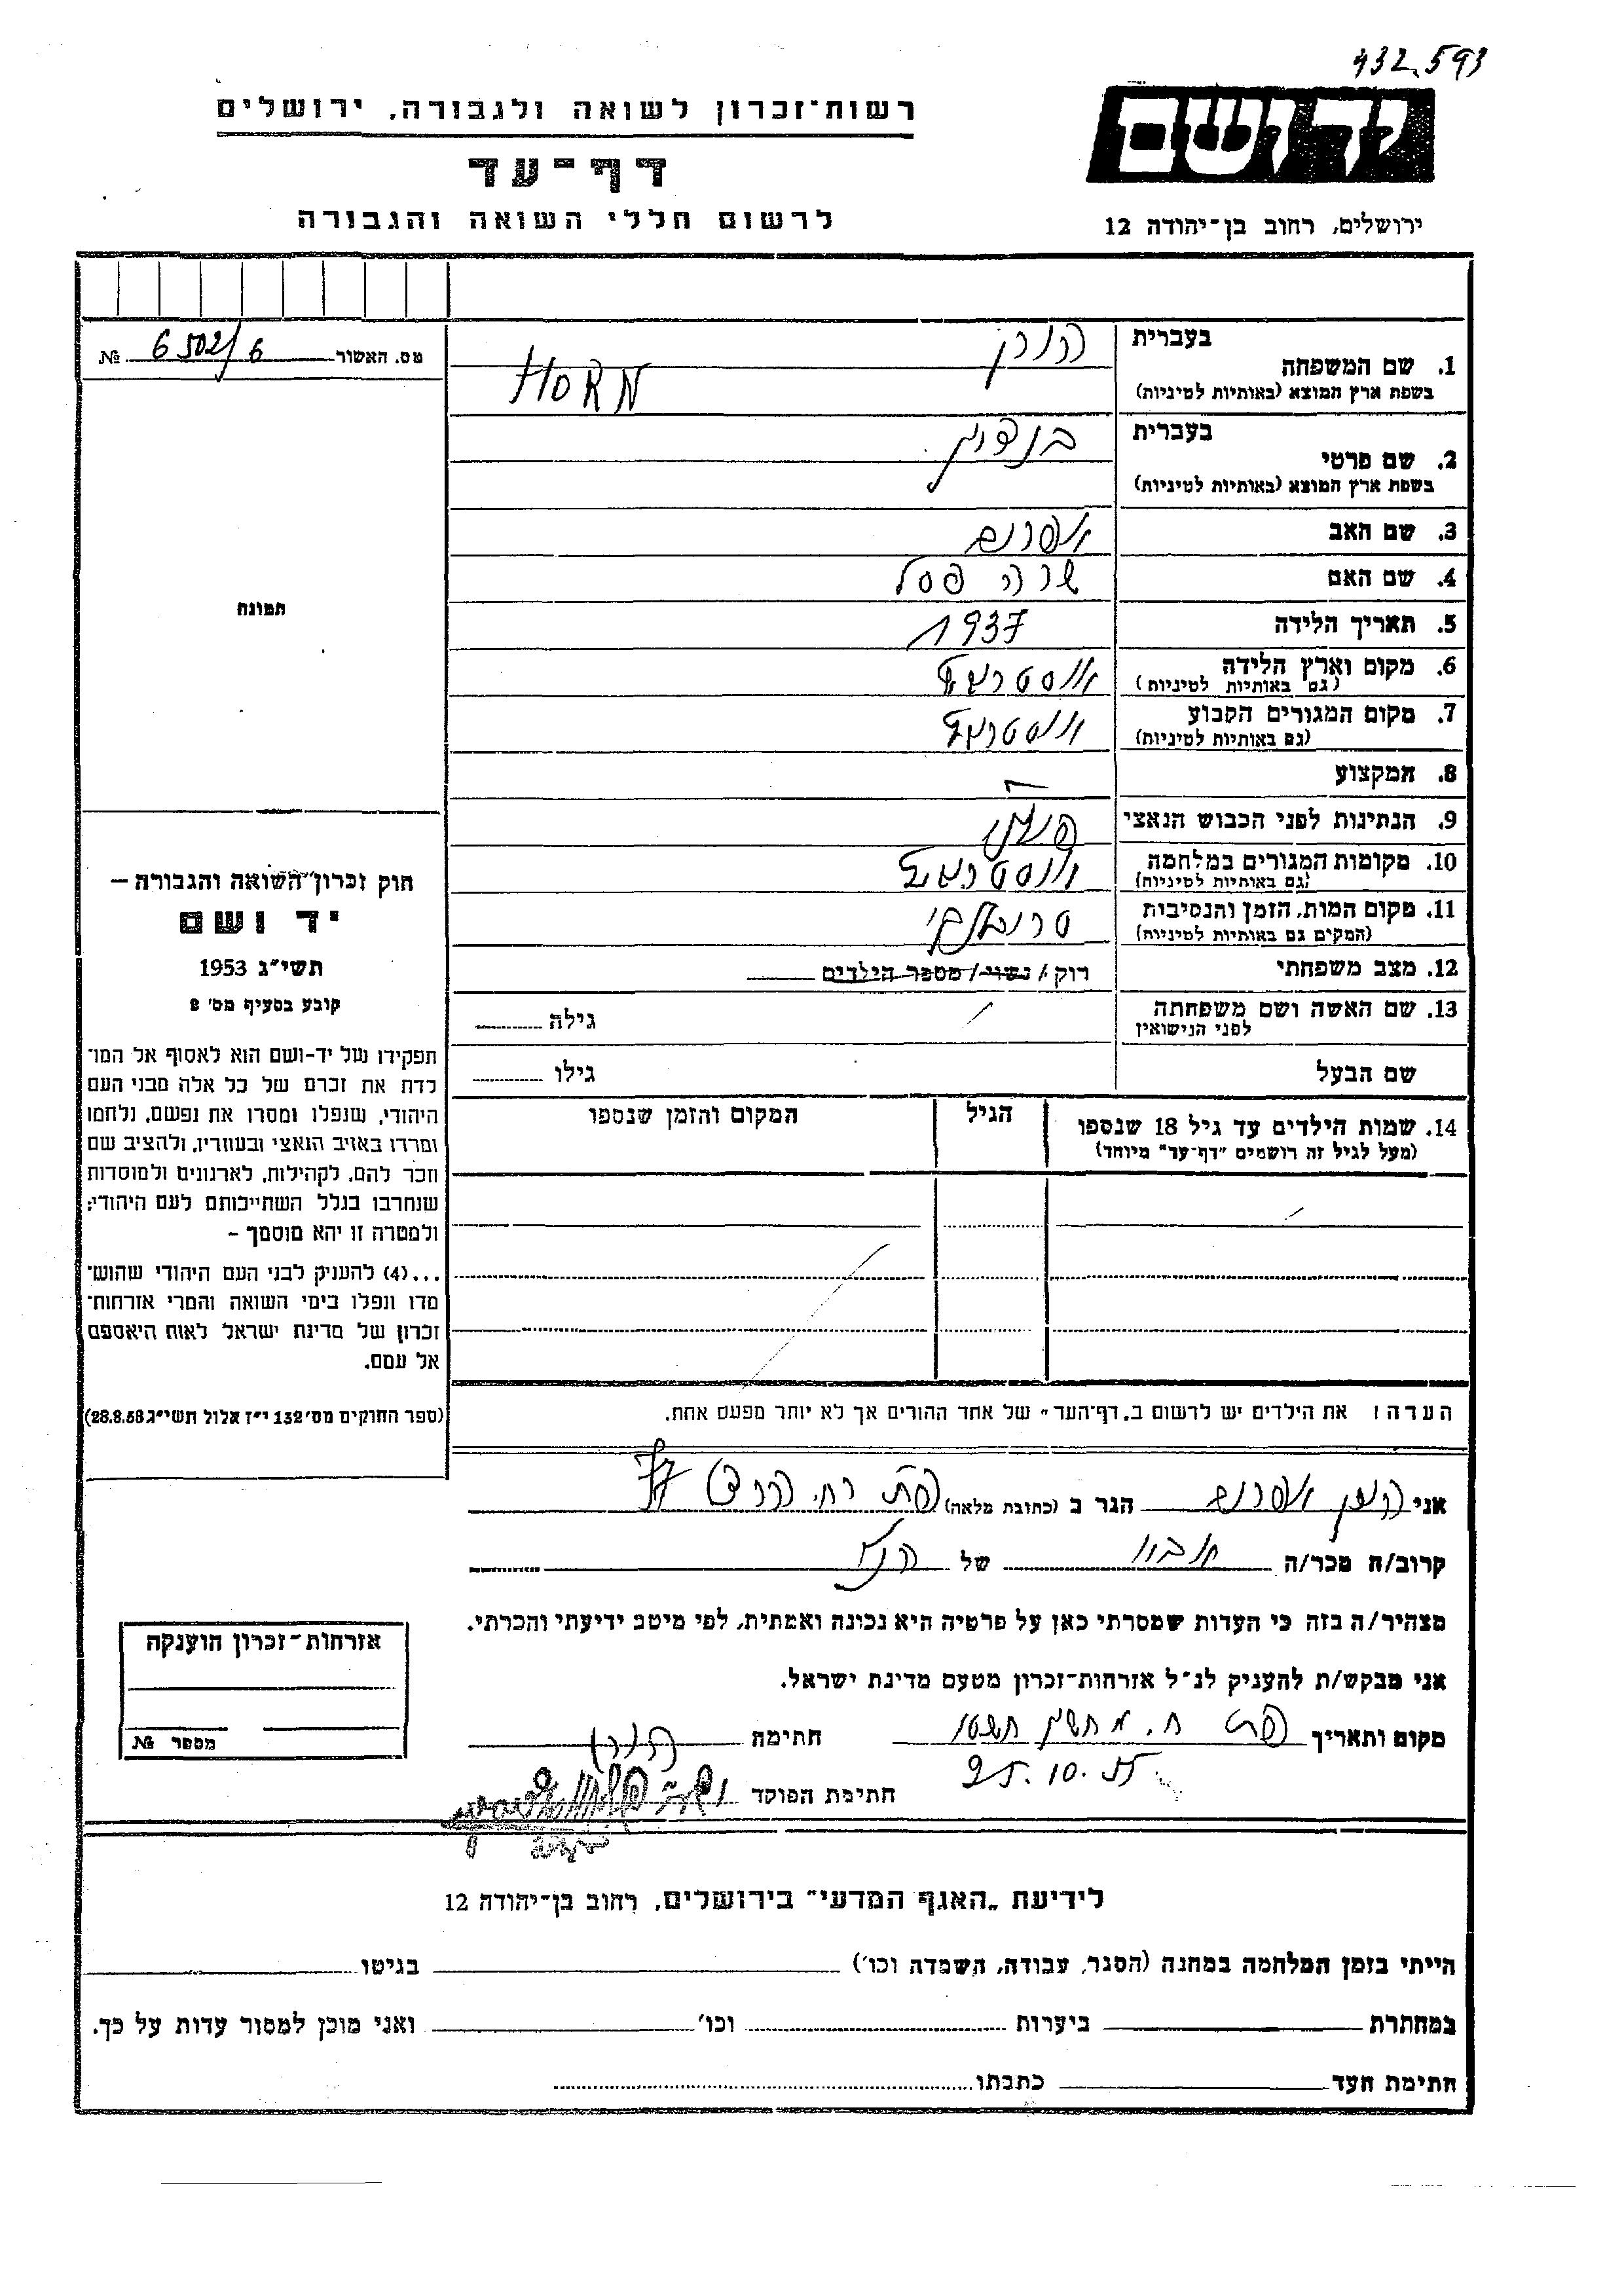 432.593
יד ושם
רשות-זכרון לשואה ולגבורה, ירושלים
דף-עד
לרשום חללי השואה והגבורה
ירושלים, רחוב בן-יהודה 12
מס. האשור 6502/6 №
בעברית הורן
1. שם המשפחה
בשפת ארץ המוצא (באותיות לטיניות) HORN
בעברית בנציון
2. שם פרטי
בשפת ארץ המוצא (באותיות לטיניות)
3. שם האב אפרים
4. שם האם שרה פסל
5. תאריך הלידה 1937
6. מקום וארץ הלידה אוסטרובץ
(גם באותיות לטיניות)
7. מקום המגורים הקבוע אוסטרובץ
(גם באותיות לטיניות)
8. המקצוע
9. הנתינות לפני הכבוש הנאצי פולני
10. מקומות המגורים במלחמה אוסטרובץ
(גם באותיות לטיניות)
11. מקום המות, הזמן והנסיבות טרבלינקי
(המקום גם באותיות לטיניות)
12. מצב משפחתי רוק/ נשוי/ מספר הילדים
13. שם האשה ושם משפחתה גילה
לפני הנישואין
שם הבעל גילו
14. שמות הילדים עד גיל 18 שנספו הגיל המקום והזמן שנספו
(מעל לגיל זה רושמים "דף-עד" מיוחד)
הערה: את הילדים יש לרשום ב„דף-העד" של אחד ההורים אך לא יותר מפעם אחת.
תמונה
חוק זכרון השואה והגבורה —
יד ושם
תשי"ג 1953
קובע בסעיף מס' 2
תפקידו של יד-ושם הוא לאסוף אל המו־
לדת את זכרם של כל אלה מבני העם
היהודי, שנפלו ומסרו את נפשם, נלחמו
ומרדו באויב הנאצי ובעוזריו, ולהציב שם
וזכר להם, לקהילות, לארגונים ולמוסדות
שנחרבו בגלל השתייכותם לעם היהודי;
ולמטרה זו יהא מוסמך –
...(4) להעניק לבני העם היהודי שהוש־
מדו ונפלו בימי השואה והמרי אזרחות־
זכרון של מדינת ישראל לאות היאספם
אל עמם.
(ספר החוקים מס' 132 י"ז אלול תשי"ג 28.8.53)
אני הורן אפרים הגר ב (כתובת מלאה)
קרוב/ה מכר/ה אביו של הנ"ל
מצהיר/ה בזה כי העדות שמסרתי כאן על פרטיה היא נכונה ואמתית, לפי מיטב ידיעתי והכרתי.
אני מבקש/ת להעניק לנ"ל אזרחות-זכרון מטעם מדינת ישראל.
מקום ותאריך חתימה הורן
25.10.55
חתימת הפוקד
אזרחות-זכרון הוענקה
מספר №
לידיעת „האגף המדעי" בירושלים, רחוב בן-יהודה 12
הייתי בזמן המלחמה במחנה (הסגר, עבודה, השמדה וכו') בגיטו
במחתרת ביערות וכו' ואני מוכן למסור עדות על כך.
חתימת העד כתבתו